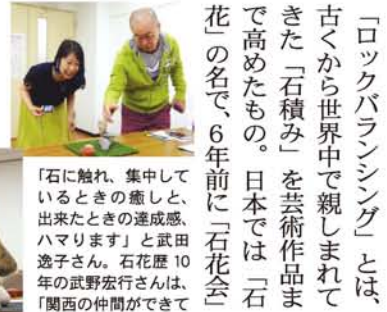 「ロックバランシング」とは、
古くから世界中で親しまれて
きた「石積み」を芸術作品ま
で高めたもの。日本では「石
花」の名で、6年前に「石花会」
「石に触れ、集中して
いるときの癒しと、
出来たときの達成感、
ハマります」と武田
逸子さん。石花歴 10
年の武野宏行さんは、
「関西の仲間ができて